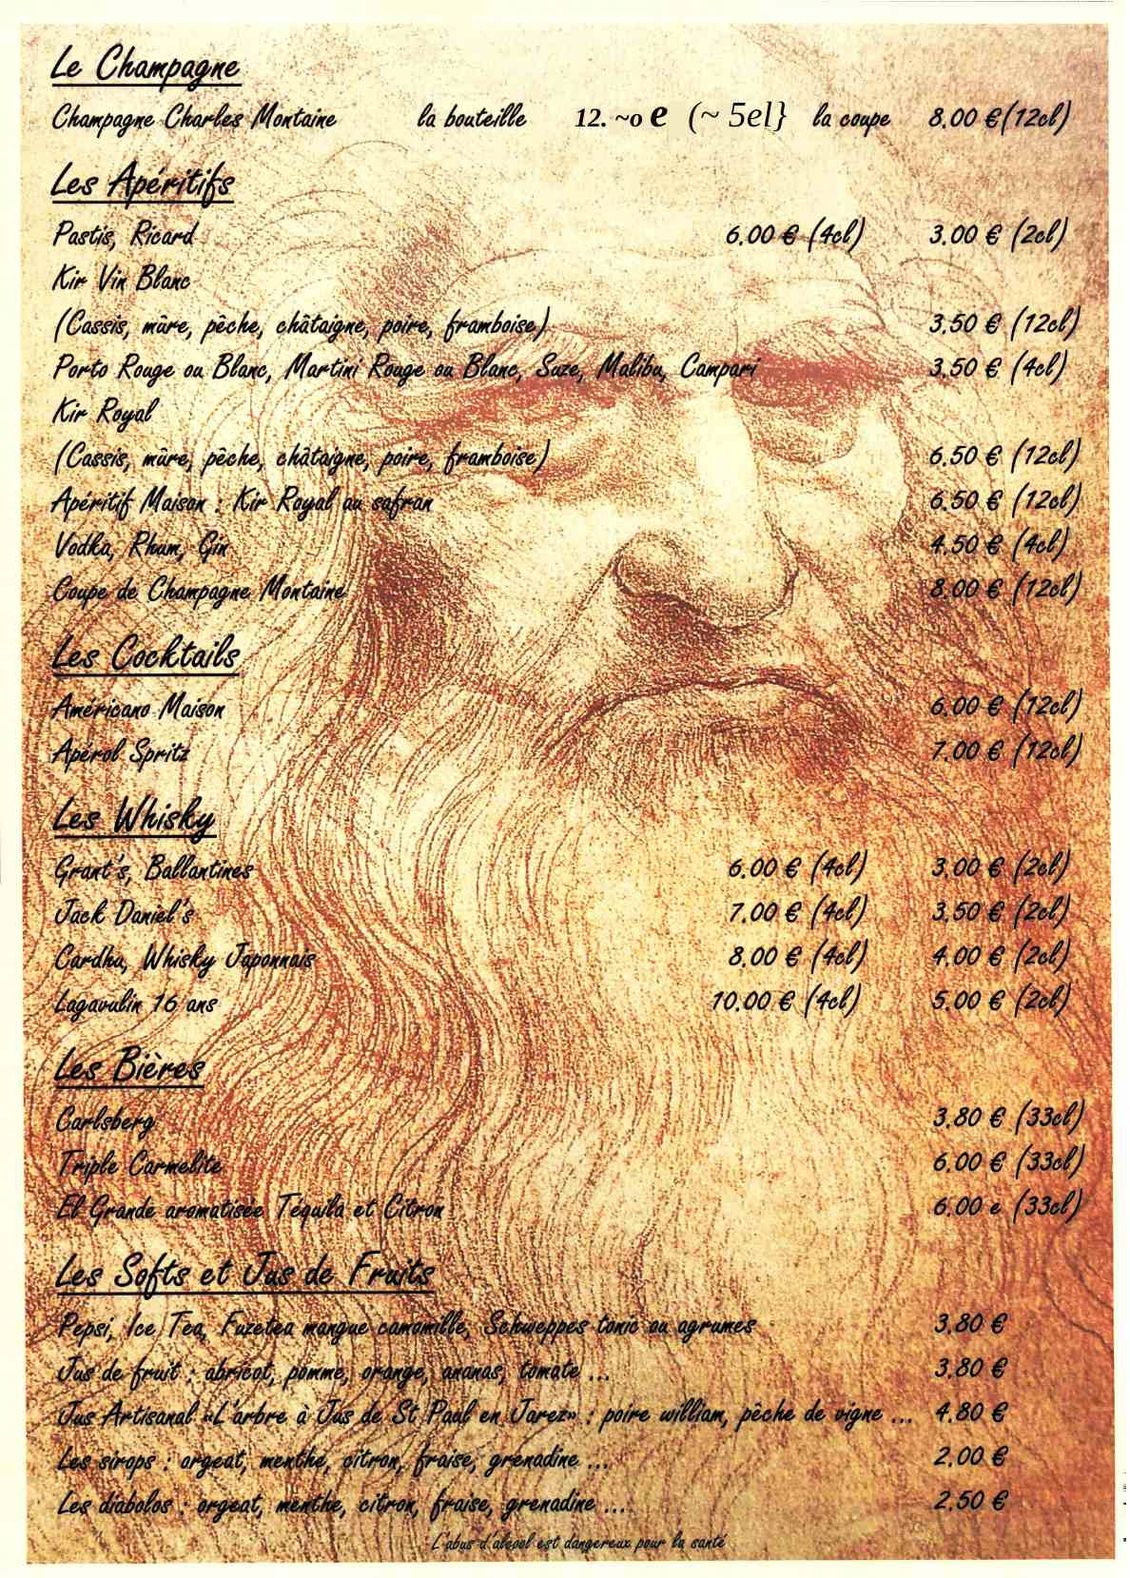 Le Champagne
Champagne Charles Montaine la bouteille 12. ~o e (~ 5el} la coupe 8,00 €(12cl)
Les Apéritifs
Pastis, Ricard 6.00 € (4cl) 3.00 € (2cl)
Kir Vin Blanc
(Cassis, mûre, pêche, châtaigne, poire, framboise) 3.50 € (12cl)
Porto Rouge ou Blanc, Martini Rouge ou Blanc, Suze, Malibu, Campari 3.50 € (4cl)
Kir Royal
(Cassis, mûre, pêche, châtaigne, poire, framboise) 6.50 € (12cl)
Apéritif Maison : Kir Royal au safran 6.50 € (12cl)
Vodka, Rhum, Gin 4.50 € (4cl)
Coupe de Champagne Montaine 8.00 € (12cl)
Les Cocktails
Américano Maison 6.00 € (12cl)
Apérol Spritz 7.00 € (12cl)
Les Whisky
Grant's, Ballantines 6.00 € (4cl) 3.00 € (2cl)
Jack Daniel's 7.00 € (4cl) 3.50 € (2cl)
Cardhu, Whisky Japonnais 8.00 € (4cl) 4.00 € (2cl)
Lagavulin 16 ans 10.00 € (4cl) 5.00 € (2cl)
Les Bières
Carlsberg 3.80 € (33cl)
Triple Carmelite 6.00 € (33cl)
El Grande aromatisée Téquila et Citron 6.00 e (33cl)
Les Softs et Jus de Fruits
Pepsi, Ice Tea, Fuzetea mangue camomille, Schweppes tonic ou agrumes 3.80 €
Jus de fruit : abricot, pomme, orange, ananas, tomate ... 3.80 €
Jus Artisanal «L'arbre à Jus de St Paul en Jarez» : poire william, pêche de vigne ... 4.80 €
Les sirops : orgeat, menthe, citron, fraise, grenadine ... 2.00 €
Les diabolos : orgeat, menthe, citron, fraise, grenadine .... 2.50 €
L'abus d'alcool est dangereux pour la santé